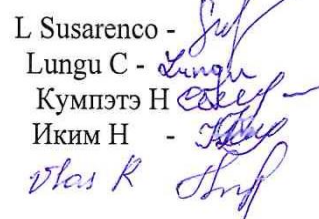 L Susarenco -
Lungu C - Lungu
Кумпэтэ Н
Иким Н -
Vlas R